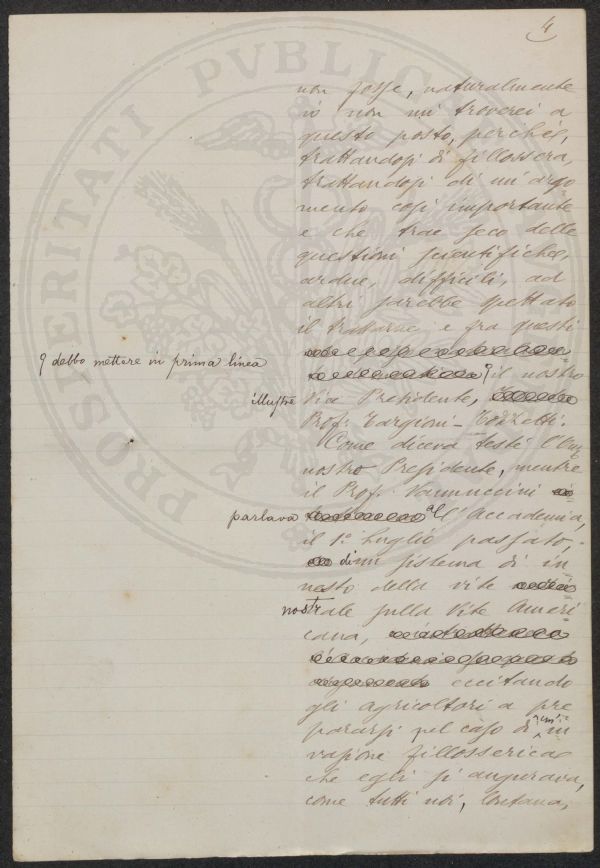 4
non fosse, naturalmente
io non mi troverei a
questo posto, perchè,
trattandosi di fillossera,
trattandosi di un argo
mento così importante
e che trae seco delle
questioni scientifiche,
ardue, difficili, ad
altri sarebbe spettato
il trattarne, e fra questi
debbo mettere in prima linea
il nostro
illustre
Vice Presidente,
Prof. Targioni-Tozzetti.
Come diceva testè l'
nostro Presidente, mentre
il Prof. Vannuccini
parlava all'Accademia,
il 1º Luglio passato,
di un sistema di in
nesto della vite
nostrale sulla Vite Ameri
cana,
eccitando
gli agricoltori a pre
pararsi pel caso di un' in
vasione fillosserica
che egli si augurava,
come tutti noi, lontana,
PROSPERITATI PVBLICAE